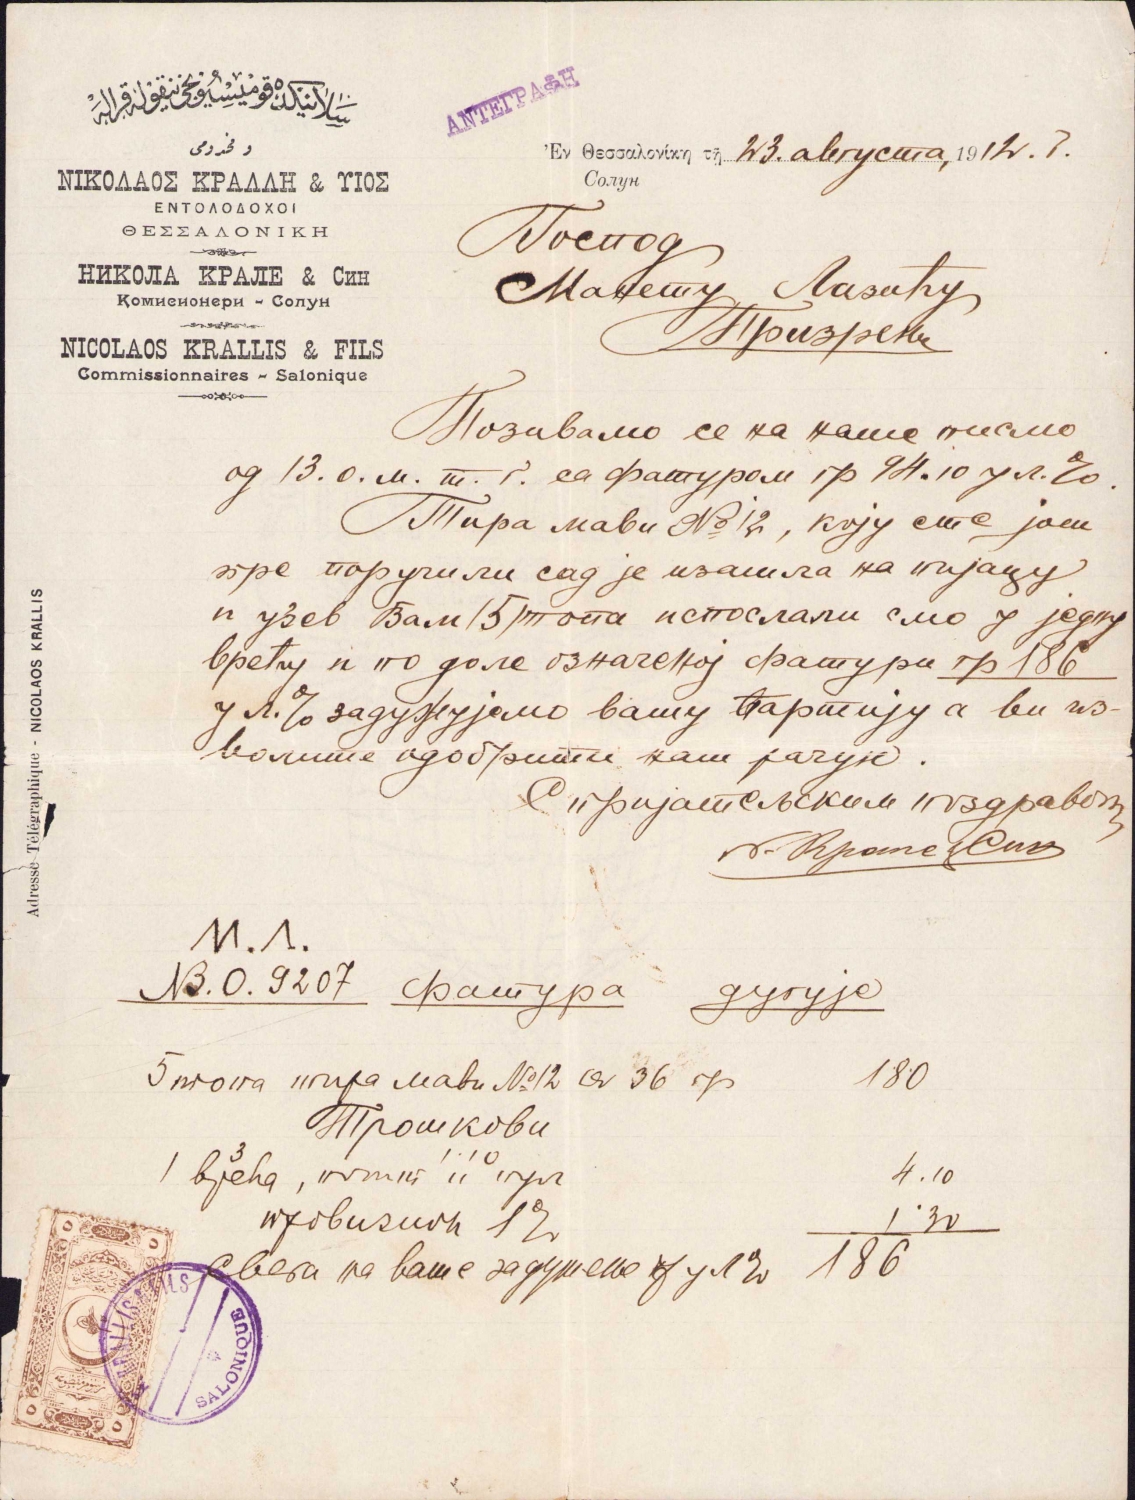 سلانيكده قوميسيونجى نيقوله قراله
و مخدومى
ΝΙΚΟΛΑΟΣ ΚΡΑΛΛΗ & ΥΙΟΣ
ΕΝΤΟΛΟΔΟΧΟΙ
ΘΕΣΣΑΛΟΝΙΚΗ
НИКОЛА КРАЛЕ & Син
Комисионери - Солун
NICOLAOS KRALLIS & FILS
Commissionnaires - Salonique
Adresse Télégraphique - NICOLAOS KRALLIS
ΑΝΤΕΓΡΑΦΗ
Ἐν Θεσσαλονίκη τῇ 23. августа, 1912. г.
Солун
Господ
Манету Лазићу
Призрен
Позивамо се на наше писмо
од 13. о. м. т. г. са фатуром гр 94.10 у л. %.
Тира мави № 12, коју сте још
пре поручили сад је изашла на пијацу
и узев Вам /5/ топа испослали смо у једну
врећу и по доле означеној фатури гр 186
у л. % задужујемо вашу партију а ви из-
волите одобрити наш рачун.
С пријатељским поздравом
Н. Крале & Син
М. Л.
№. 0. 9207 фатура дугује
5 топа тира мави № 12 а 36 гр 180
Трошкови
1 врећа, 4.10
провизион 1% 1.30
Свега на ваше задужење у л % 186
KRALLIS & FILS
SALONIQUE